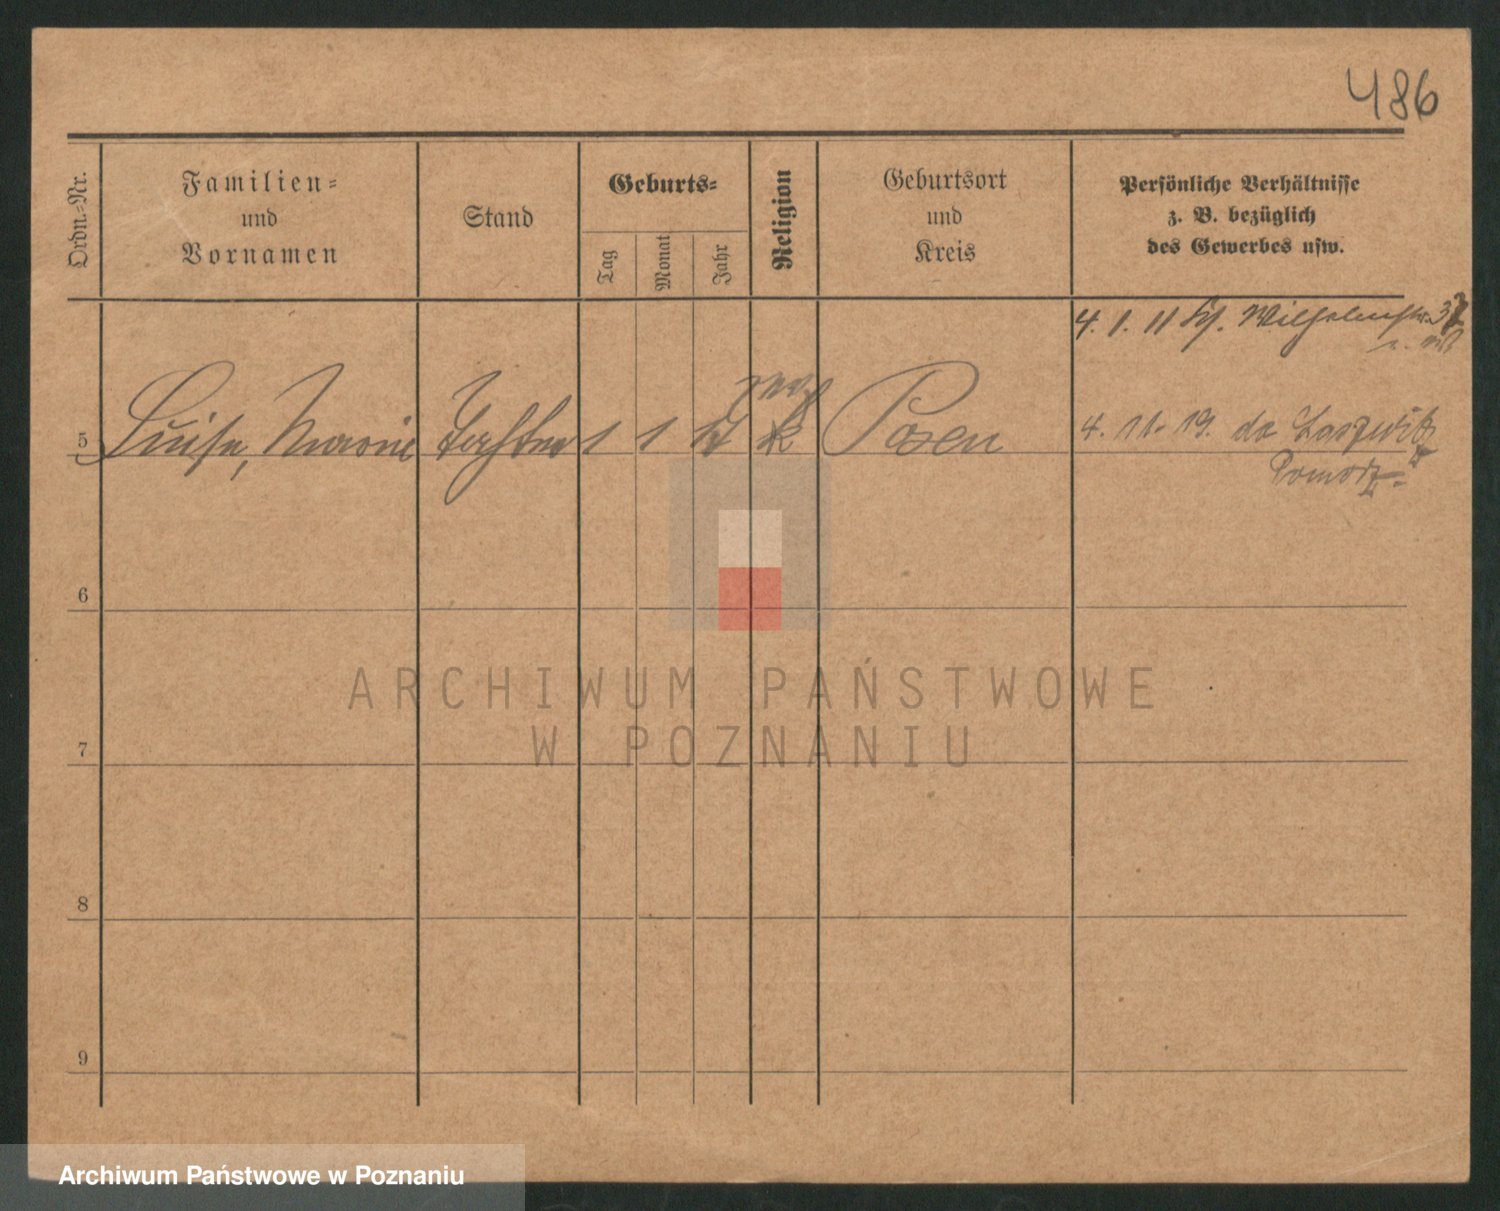 486
Ordn.=Nr.
Familien=
und
Vornamen
Stand
Geburts=
Tag
Monat
Jahr
Religion
Geburtsort
und
Kreis
Persönliche Verhältnisse
z. B. bezüglich
des Gewerbes usw.
4. 1. 11 Wilhelmstr.
5 Luise, Marie Tochter 1 1 k Posen
4. 11. 19.
6
7
8
9
ARCHIWUM PAŃSTWOWE
W POZNANIU
Archiwum Państwowe w Poznaniu